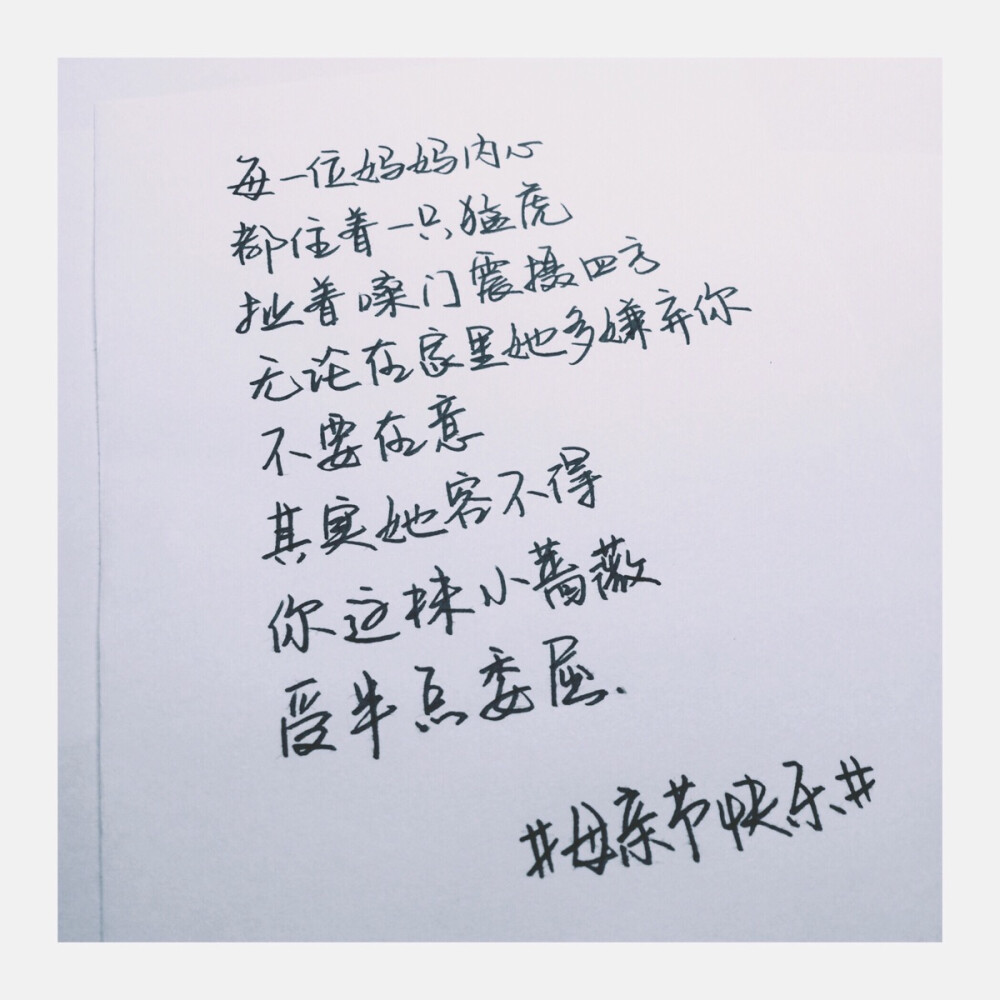 每一位妈妈内心
都住着一只猛虎
扯着嗓门震摄四方
无论在家里她多嫌弃你
不要在意
其实她容不得
你这抹小蔷薇
受半点委屈.
#母亲节快乐#